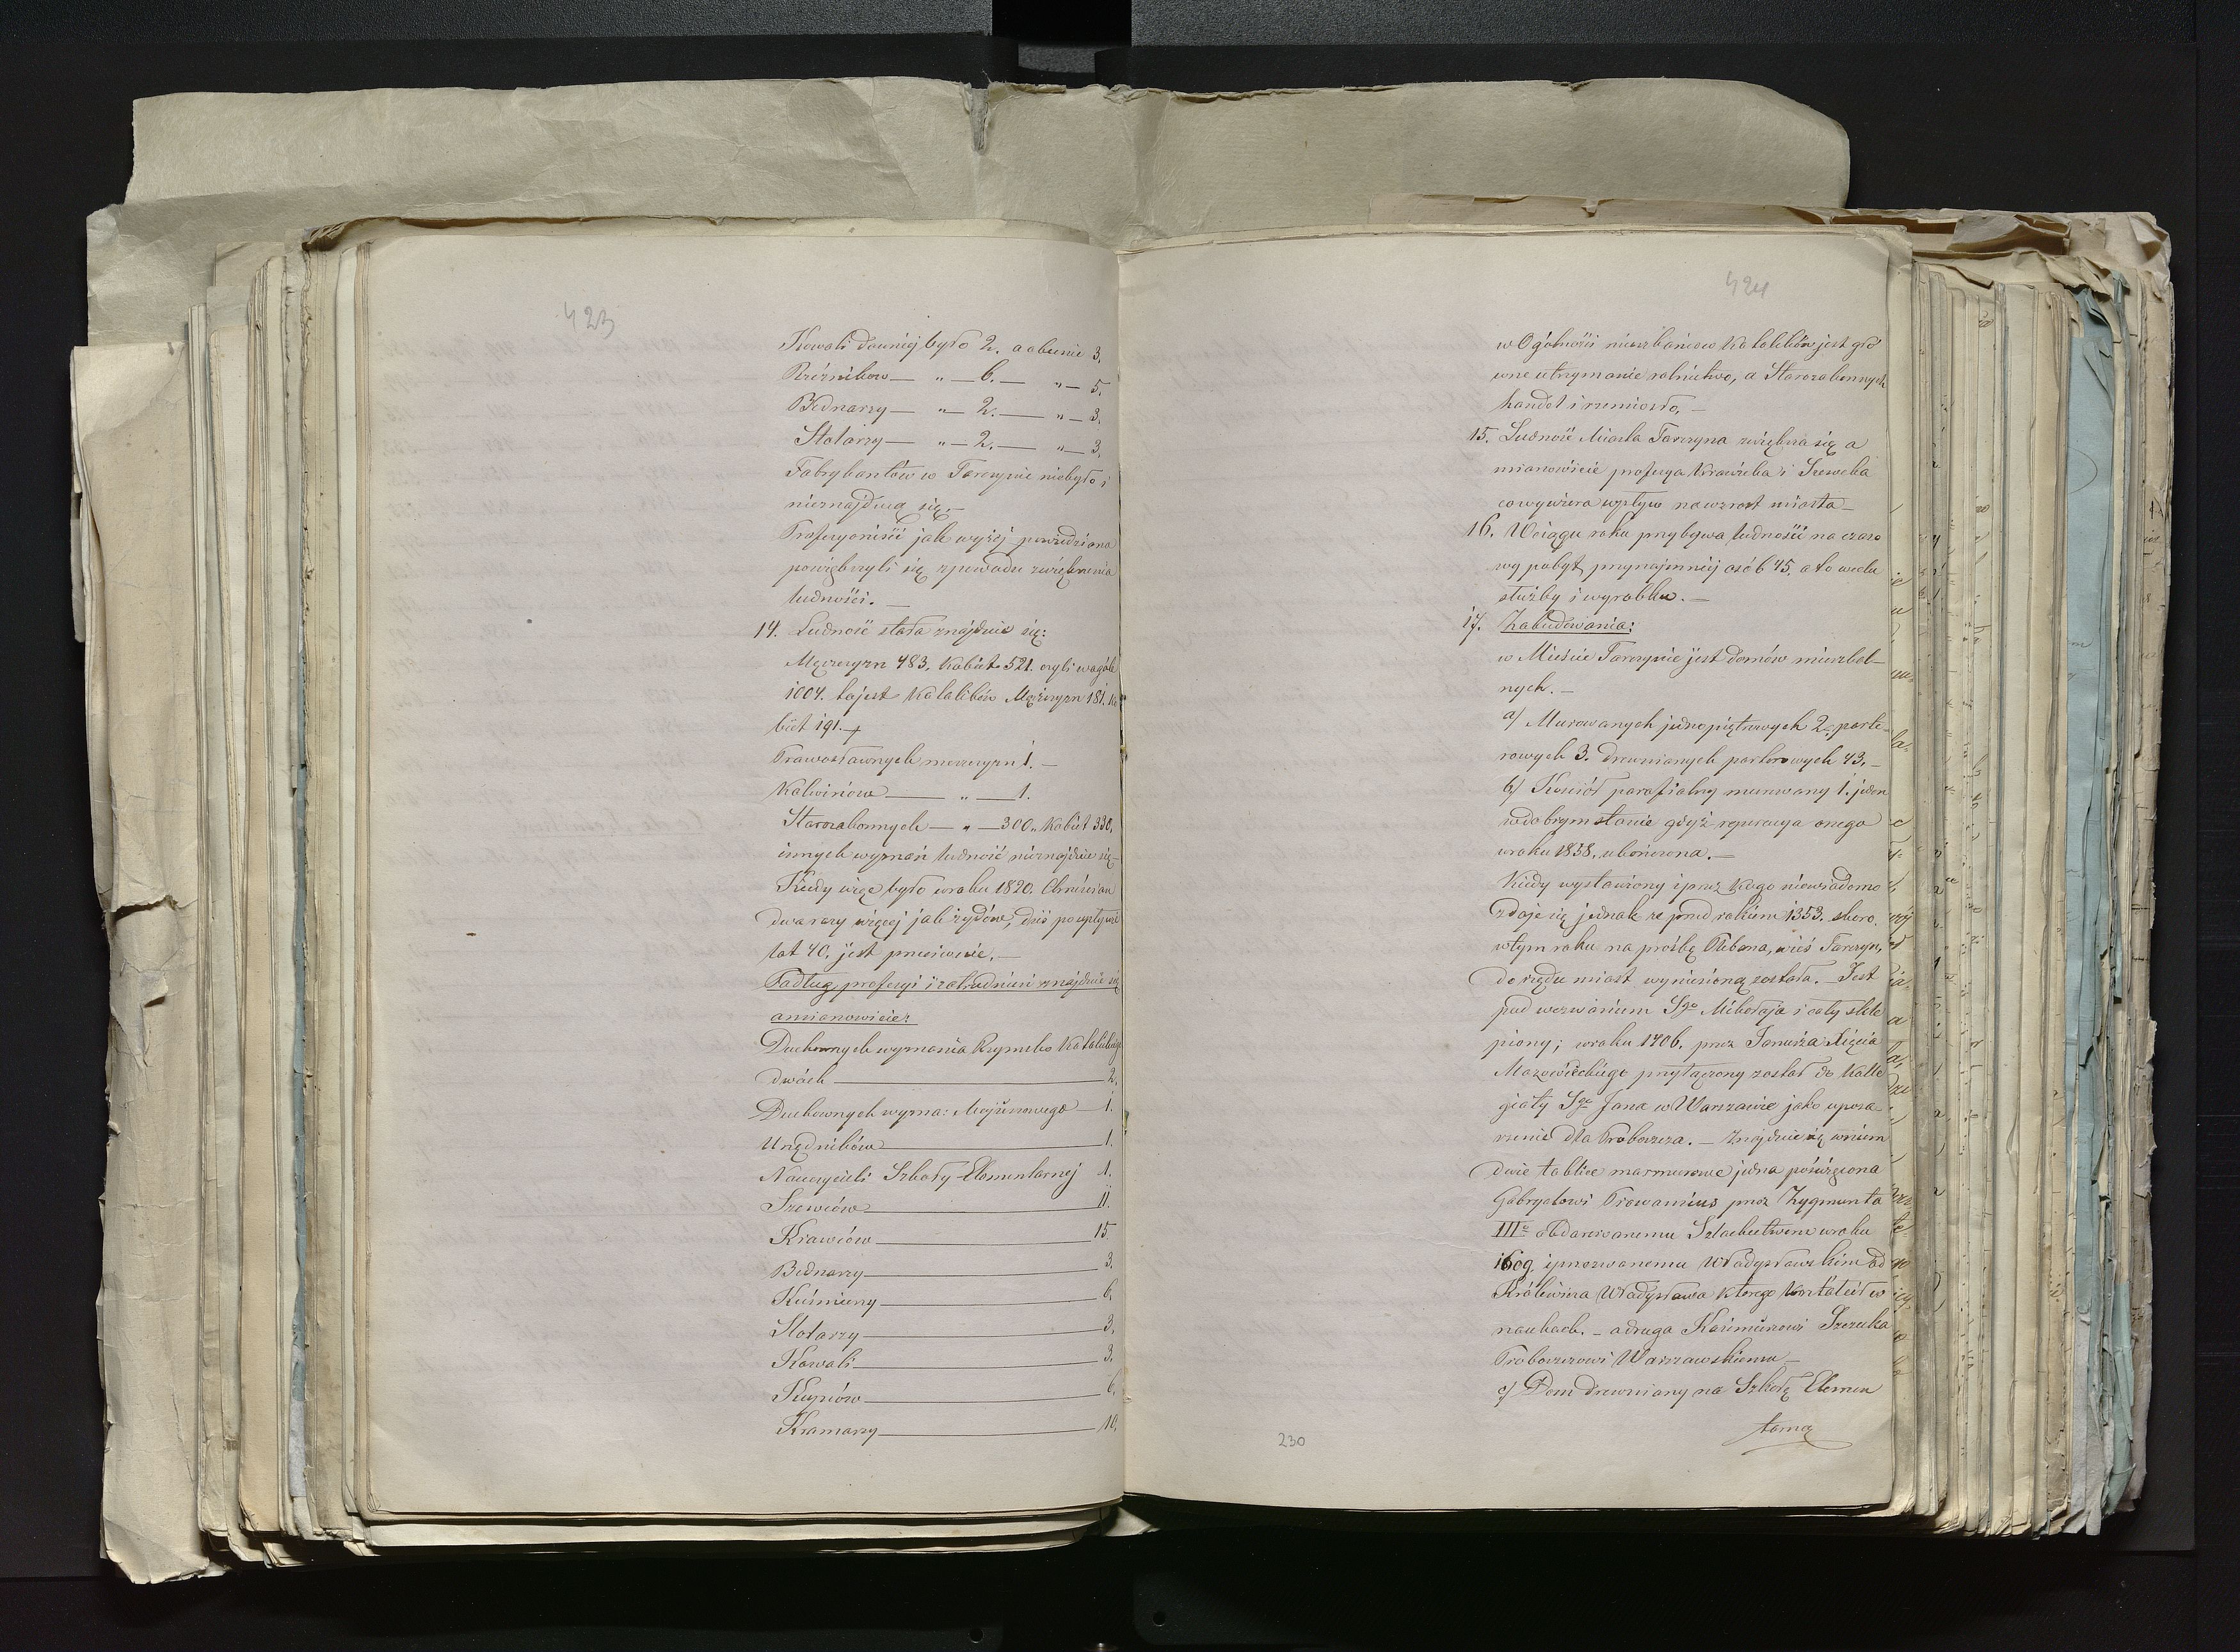 423
Kowali dawniej było 2. a obecnie 3.
Rzeźników — " — 6. — " — 5.
Bednarzy — " — 2. — " — 3.
Stolarzy — " — 2. — " — 3.
Fabrykantów w Tarczynie niebyło i
nieznajduią się. —
Professyoniści jak wyżej powiedziano
powiększyli się zpowodu zwiększenia
ludności. —
14. Ludność stała znajduie się:
Męzczyzn 483. kobiet 521. czyli wogóle
1004. tojest Katolików Mężczyzn 181. Ko
biet 191. +
Prawosławnych mezczyzn 1. —
Kalwinów — " — 1.
Starozakonnych — " — 300 " Kobiet 330.
innych wyznań ludność nieznajduie się —
Kiedy więc było wroku 1820. Chrześcian
dwa razy więcej jak żydów, dziś poupływie
lat 40. jest przeciwnie. —
Podług professyi i zatrudnień znajduie się
amianowicie:
Duchownych wyznania Rzymsko Katolickiego
dwóch — 2.
Duchownych wyzna: Mojżeszowego — 1.
Urzędników — 1.
Nauczycieli Szkoły Elementarnej 1.
Szewców — 11.
Krawców — 15.
Bednarzy — 3.
Kuśnierzy — 6.
Stolarzy — 3.
Kowali — 3.
Kupców — 6.
Kramarzy — 10.
424
w Ogólności mieszkańców Katolików jest głó
wne utrzymanie rolnictwo, a Starozakonnych
handel i rzemiosło. —
15. Ludność Miasta Tarczyna zwiększa się a
mianowicie professya Krawiecka i Szewcka
cowywiera wpływ nawzrost miasta —
16. Wciągu roku przybywa ludności na czaso
wy pobyt przynajmniej osób 45. a to wcelu
służby i wyrobku. —
17. Zabudowania:
w Mieście Tarczynie jest domów mieszkal-
nych. —
a/ Murowanych jednopiętrowych 2. parte-
rowych 3. drewnianych parterowych 43. —
b/ Kościół parafialny murowany 1. jeden
wdobrym stanie gdyż reperacya onego
wroku 1858. ukończona. —
Kiedy wystawiony i przez kogo niewiadomo
zdaje się jednak że przed rokiem 1353. skoro
wtym roku na prośbę Plebana, wieś Tarczyn,
do rzędu miast wyniesioną została. — Jest
pod wezwaniem Sgo Mikołaja i cały skle
piony; wroku 1406. przez Janusza Xięcia
Mazowieckiego przyłączony został do Kolle
giaty Sgo Jana w Warszawie jako uposa-
żenie dla Proboszcza. — Znajduie się wniem
dwie tablice marmurowe jedna poświęcona
Gabryelowi Prowancius przez Zygmunta
IIIo obdarowanemu Szlachectwem wroku
1609. i przezwanemu Władysławskim od
Królewicza Władysława którego kształcił w
naukach. — adruga Kazimierzowi Szczuka
Proboszczowi Warszawskiemu —
c/ Dom drewniany na Szkołę Elemen
tarną
230